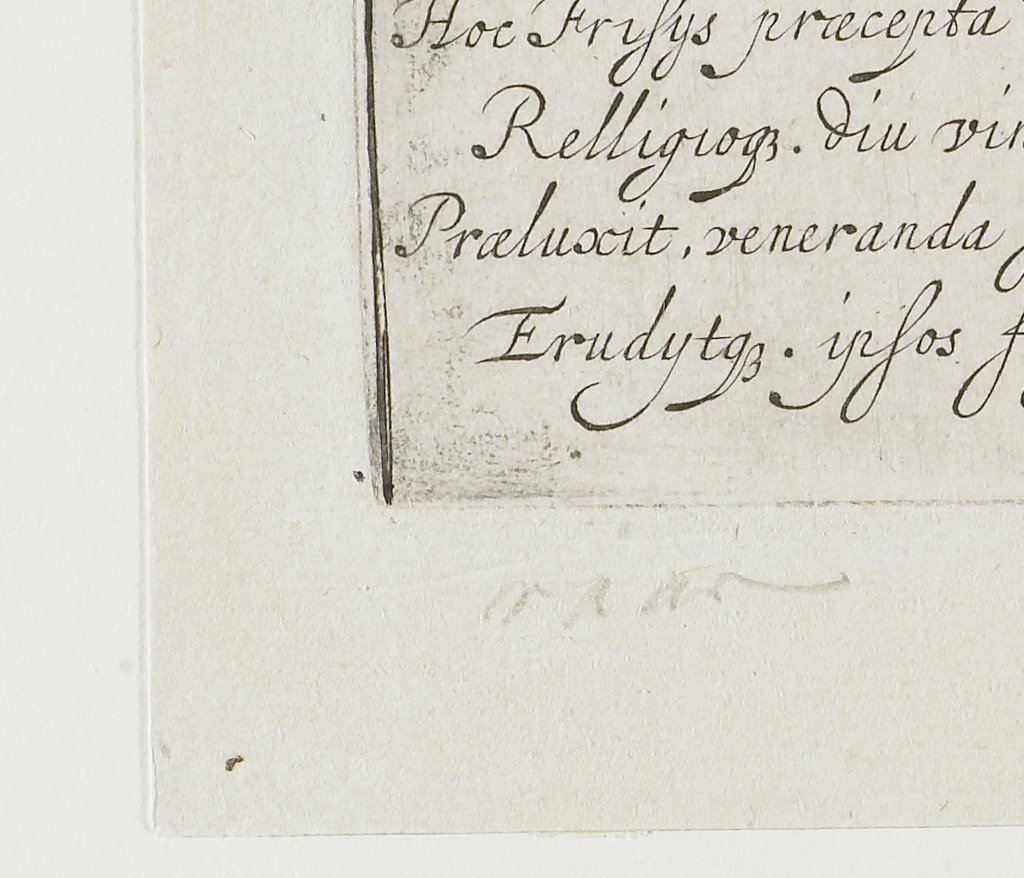 Hoc Frisys præcepta
Relligioqꝫ. diu
Præluxit, veneranda
Erudytqꝫ. ipsos